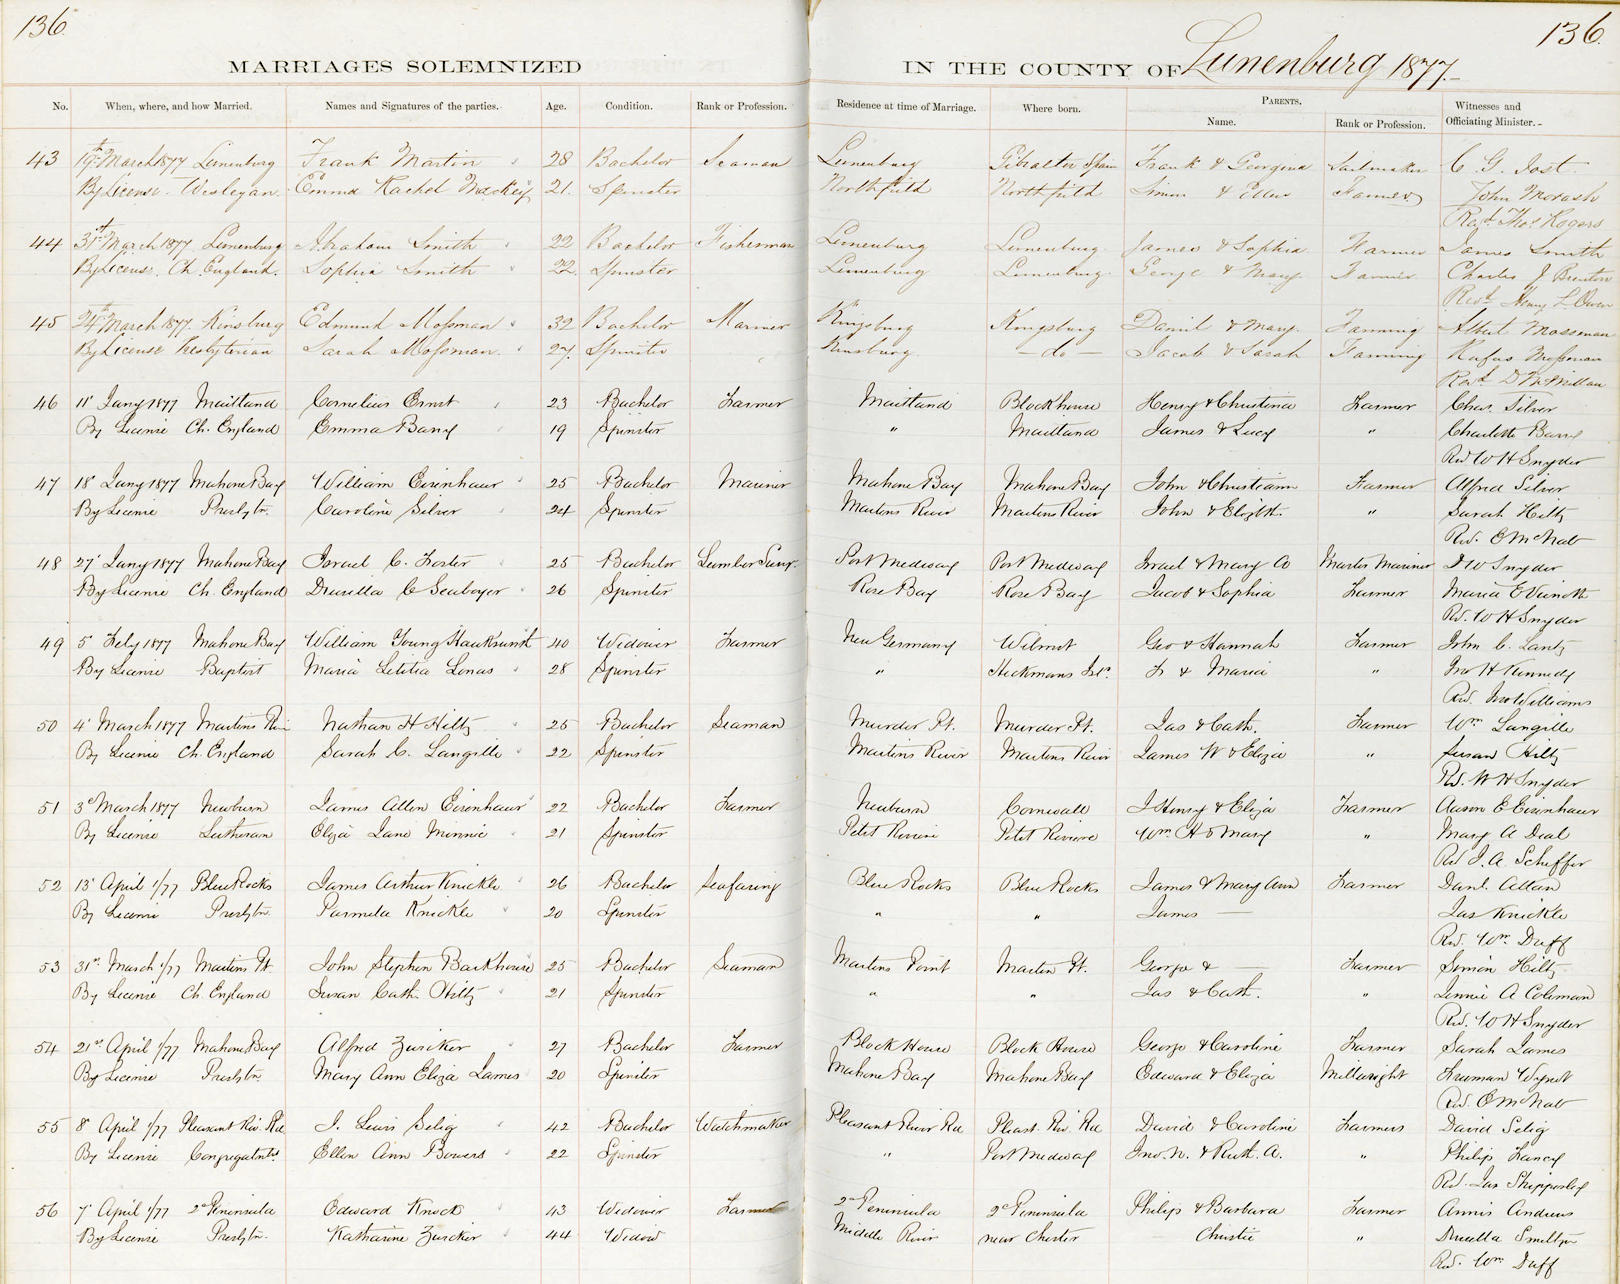 136. 136.
MARRIAGES SOLEMNIZED IN THE COUNTY OF Lunenburg 1877.
No. When, where, and how Married. Names and Signatures of the parties. Age. Condition. Rank or Profession. Residence at time of Marriage. Where born. PARENTS. Name. Rank or Profession. Witnesses and Officiating Minister.
43 19th March 1877 Lunenburg Frank Martin 28 Bachelor Seaman Lunenburg Gibralter Spain Frank & Georgina Sailmaker C. G. Jost.
By License. Wesleyan. Emma Rachel Mackey 21. Spinster Northfield Northfield Simon & Ellen Farmer John Morash
Revd. Thos. Rogers
44 31st March 1877 Lunenburg Abraham Smith 22 Bachelor Fisherman Lunenburg Lunenburg. James & Sophia Farmer James Smith
By License. Ch. England. Sophia Smith 22. Spinster Lunenburg Lunenburg. George & Mary. Farmer Charles J Brenton
Revd. Henry L. Owen
45 24th March 1877. Kinsburg Edmund Mossman 32 Bachelor Mariner Kingsburg Kingsburg Daniel & Mary. Farming Albert Mossman
By License Presbyterian Sarah Mossman. 27. Spinster Kinsburg. — do — Jacob & Sarah Farming Rufus Mossman
Revd. D McMillan
46 11' Jany 1877 Maitland Cornelius Ernst 23 Bachelor Farmer Maitland Blockhouse Henry & Christina Farmer Chas. Silver
By License Ch. England Emma Barry 19 Spinster " Maitland James & Lucy " Charlotte Barry
Rev W H Snyder
47 18' Jany 1877 Mahone Bay William Eisenhaur 25 Bachelor Mariner Mahone Bay Mahone Bay John & Christiann Farmer Alfred Silver
By License Presbytn. Caroline Silver 24 Spinster Martins River Martins River John & Elizbth. " Sarah Hiltz
Rev. E McNab
48 27' Jany 1877 Mahone Bay Israel C. Foster 25 Bachelor Lumber Surv. Port Medway Port Medway Israel & Mary A Master Mariner D W Snyder
By License Ch. England Drusilla C Seaboyer 26 Spinster Rose Bay Rose Bay Jacob & Sophia Farmer Maria E
Rev. W H Snyder
49 5' Feby 1877 Mahone Bay William Young 40 Widower Farmer New Germany Wilmot Geo & Hannah Farmer John C. Lantz
By License Baptist Maria Letitia Lonas 28 Spinster " Heckmans Isl. & Maria " Jno H Kennedy
Rev. Jno Williams
50 4' March 1877 Martins Riv Nathan H Hiltz 25 Bachelor Seaman Murder Pt. Murder Pt. Jas & Cath. Farmer Wm Langille
By License Ch. England Sarah C. Langille 22 Spinster Martins River Martins River James W & Eliza " Susan Hiltz
Rev. W H Snyder
51 3d March 1877 Newburn James Allen Eisenhaur 22 Bachelor Farmer Newburn Cornwall J Henry & Eliza Farmer Aaron E Eisenhaur
By License Lutheran Eliza Jane Minnie 21 Spinster Petit Riviere Petit Riviere Wm. H & Mary " Mary A Dial
Rev J. A. Scheffer
52 13' April 1/77 Blue Rocks James Arthur Knickle 26 Bachelor Seafaring Blue Rocks Blue Rocks James & Mary Ann Farmer Danl. Allan
By License Presbytn. Parmela Knickle 20 Spinster " " James — Jas Knickle
Rev. Wm. Duff
53 31st. March 1/77 Martins Pt. John Stephen Backhouse 25 Bachelor Seaman Martins Point Martin Pt. George & — Farmer Simon Hiltz
By License Ch. England Susan Cath. Hiltz 21 Spinster " " Jas & Cath. " Jennie A Coleman
Rev. W H Snyder
54 21st. April 1/77 Mahone Bay Alfred Zwicker 27 Bachelor Farmer Block House Block House George & Caroline Farmer Sarah James
By License Presbytn. Mary Ann Eliza James 20 Spinster Mahone Bay Mahone Bay Edward & Eliza Millwright Freeman Wynot
Rev. E McNab
55 8' April 1/77 Pleasant Riv. Rd J. Lewis Selig 42 Bachelor Watchmaker Pleasant River Rd Pleast. Riv. Rd David & Caroline Farmers David Selig
By License Congregatnl. Ellen Ann Bowers 22 Spinster " Port Medway Jno. N. & Ruth. A. " Philip Fancy
Rev. Jas Shipperley
56 7' April 1/77 2d Peninsula Edward Knock 43 Widower Farmer 2d Peninsula 2d Peninsula Philip & Barbara Farmer Annis Andrews
By License Presbytn. Katharine Zwicker 44 Widow Middle River near Chester Christie " Drusilla Smeltzer
Rev. Wm. Duff